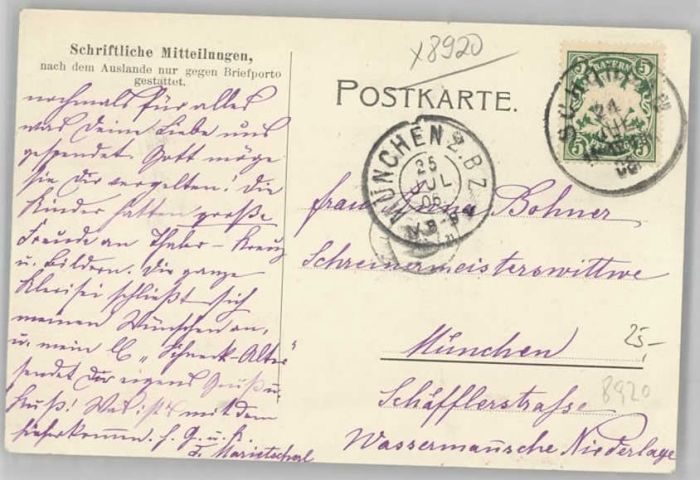 Schriftliche Mitteilungen,
nach dem Auslande nur gegen Briefporto
gestattet.
nochmals für alles
was deine Liebe uns
gespendet. Gott möge
sie Dir vergelten! Die
Kinder hatten große
Freude an Thaler-Kreuz
u. Bildern. Die ganze
schließt sich
meinen Wünschen an,
u. mein lb
sendet Dir eigens Gruß u.
Kuß! Was ist's mit dem
f. G. u. K.
x8920
POSTKARTE.
BAYERN
5 5
24
JUL
06
MÜNCHEN 2. B.Z.
25
JUL
06
Frau Bohner
Schreinermeisterswittwe
München
25,-
Schäfflerstraße
8920
Wassermann'sche Niederlage